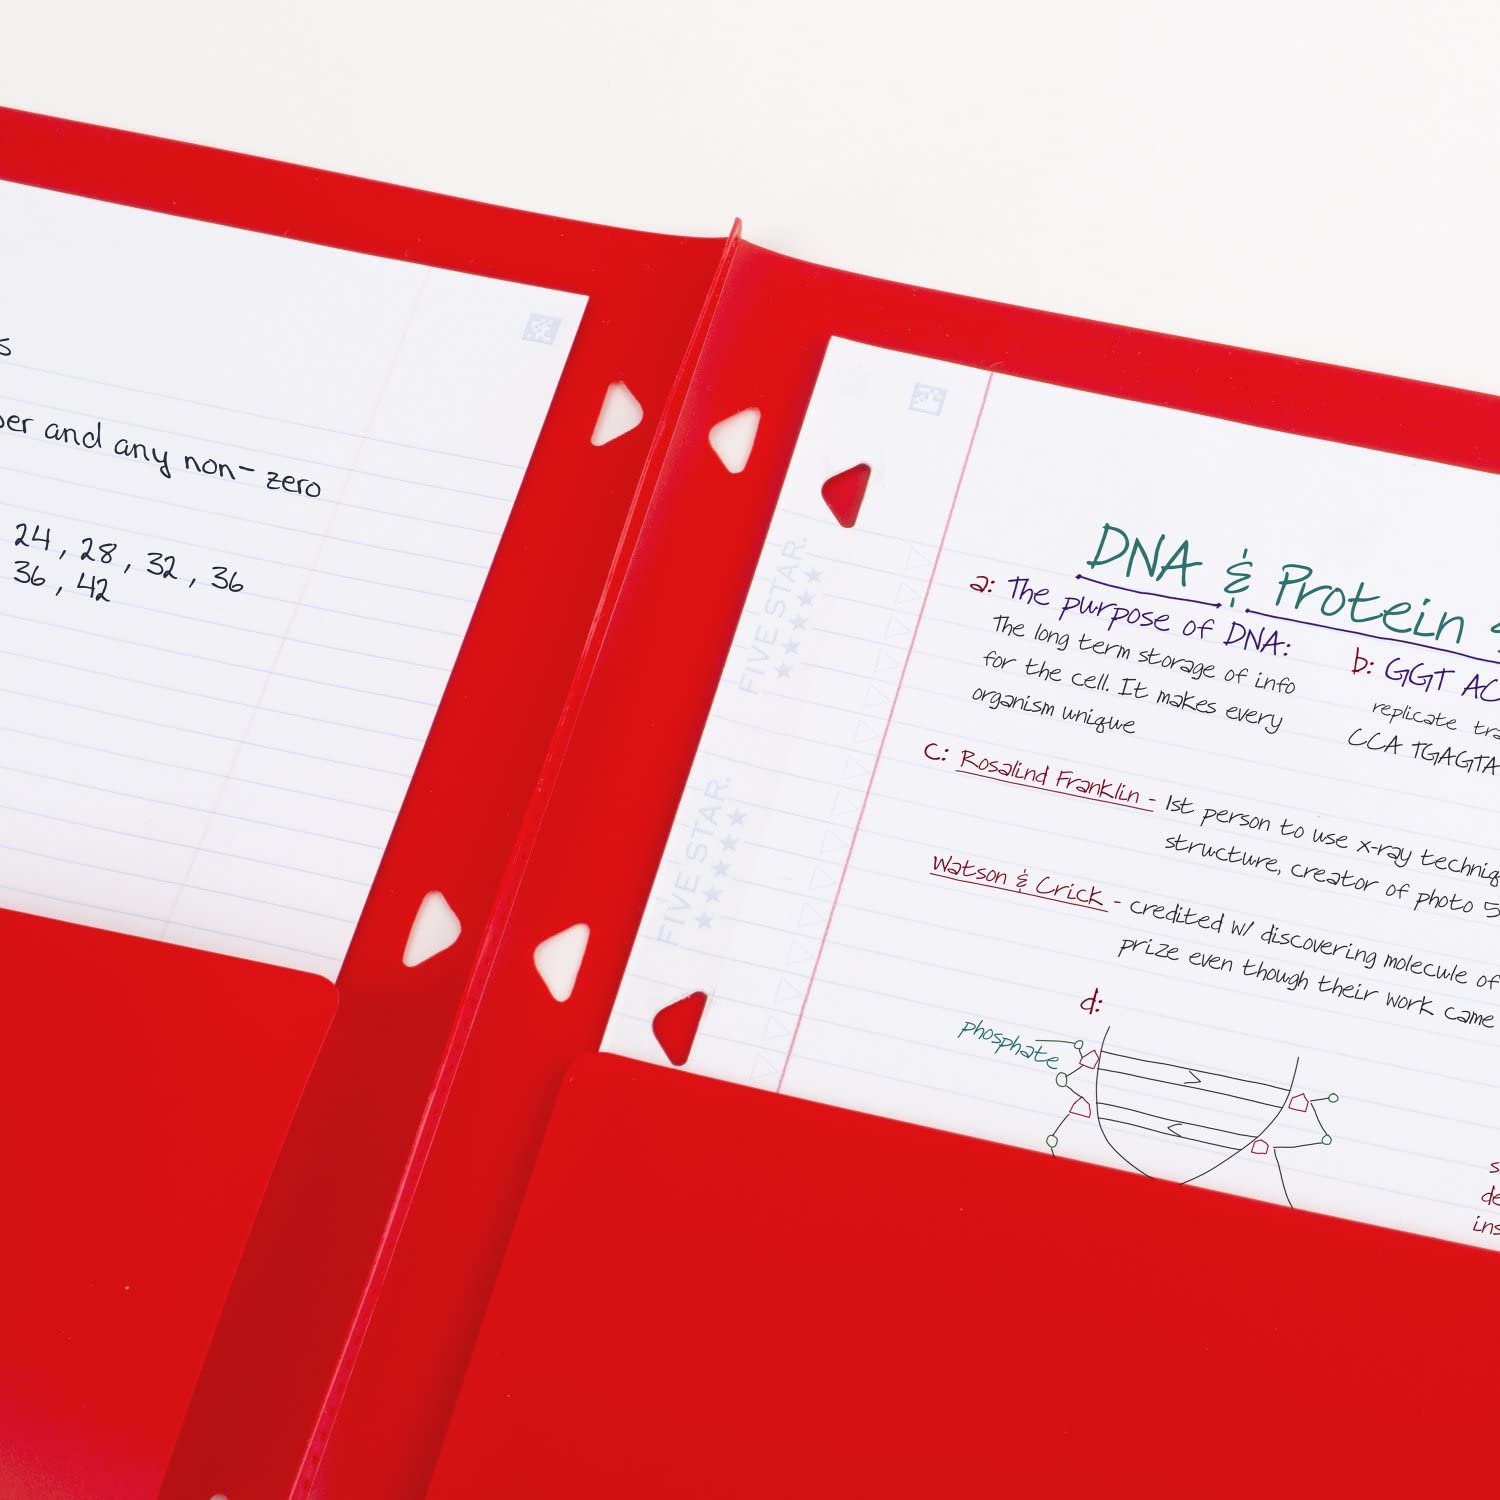 s
ber and any non-zero
24, 28, 32, 36
36, 42
FIVE STAR.
FIVE STAR.
DNA & Protein
a: The purpose of DNA:
The long term storage of info
for the cell. It makes every
organism unique
b: GGT AC
replicate tra
CCA TGAGTA
c: Rosalind Franklin - 1st person to use x-ray techniq
structure, creator of photo 5
Watson & Crick - credited w/ discovering molecule of
prize even though their work came
d:
phosphate
s
de
ins